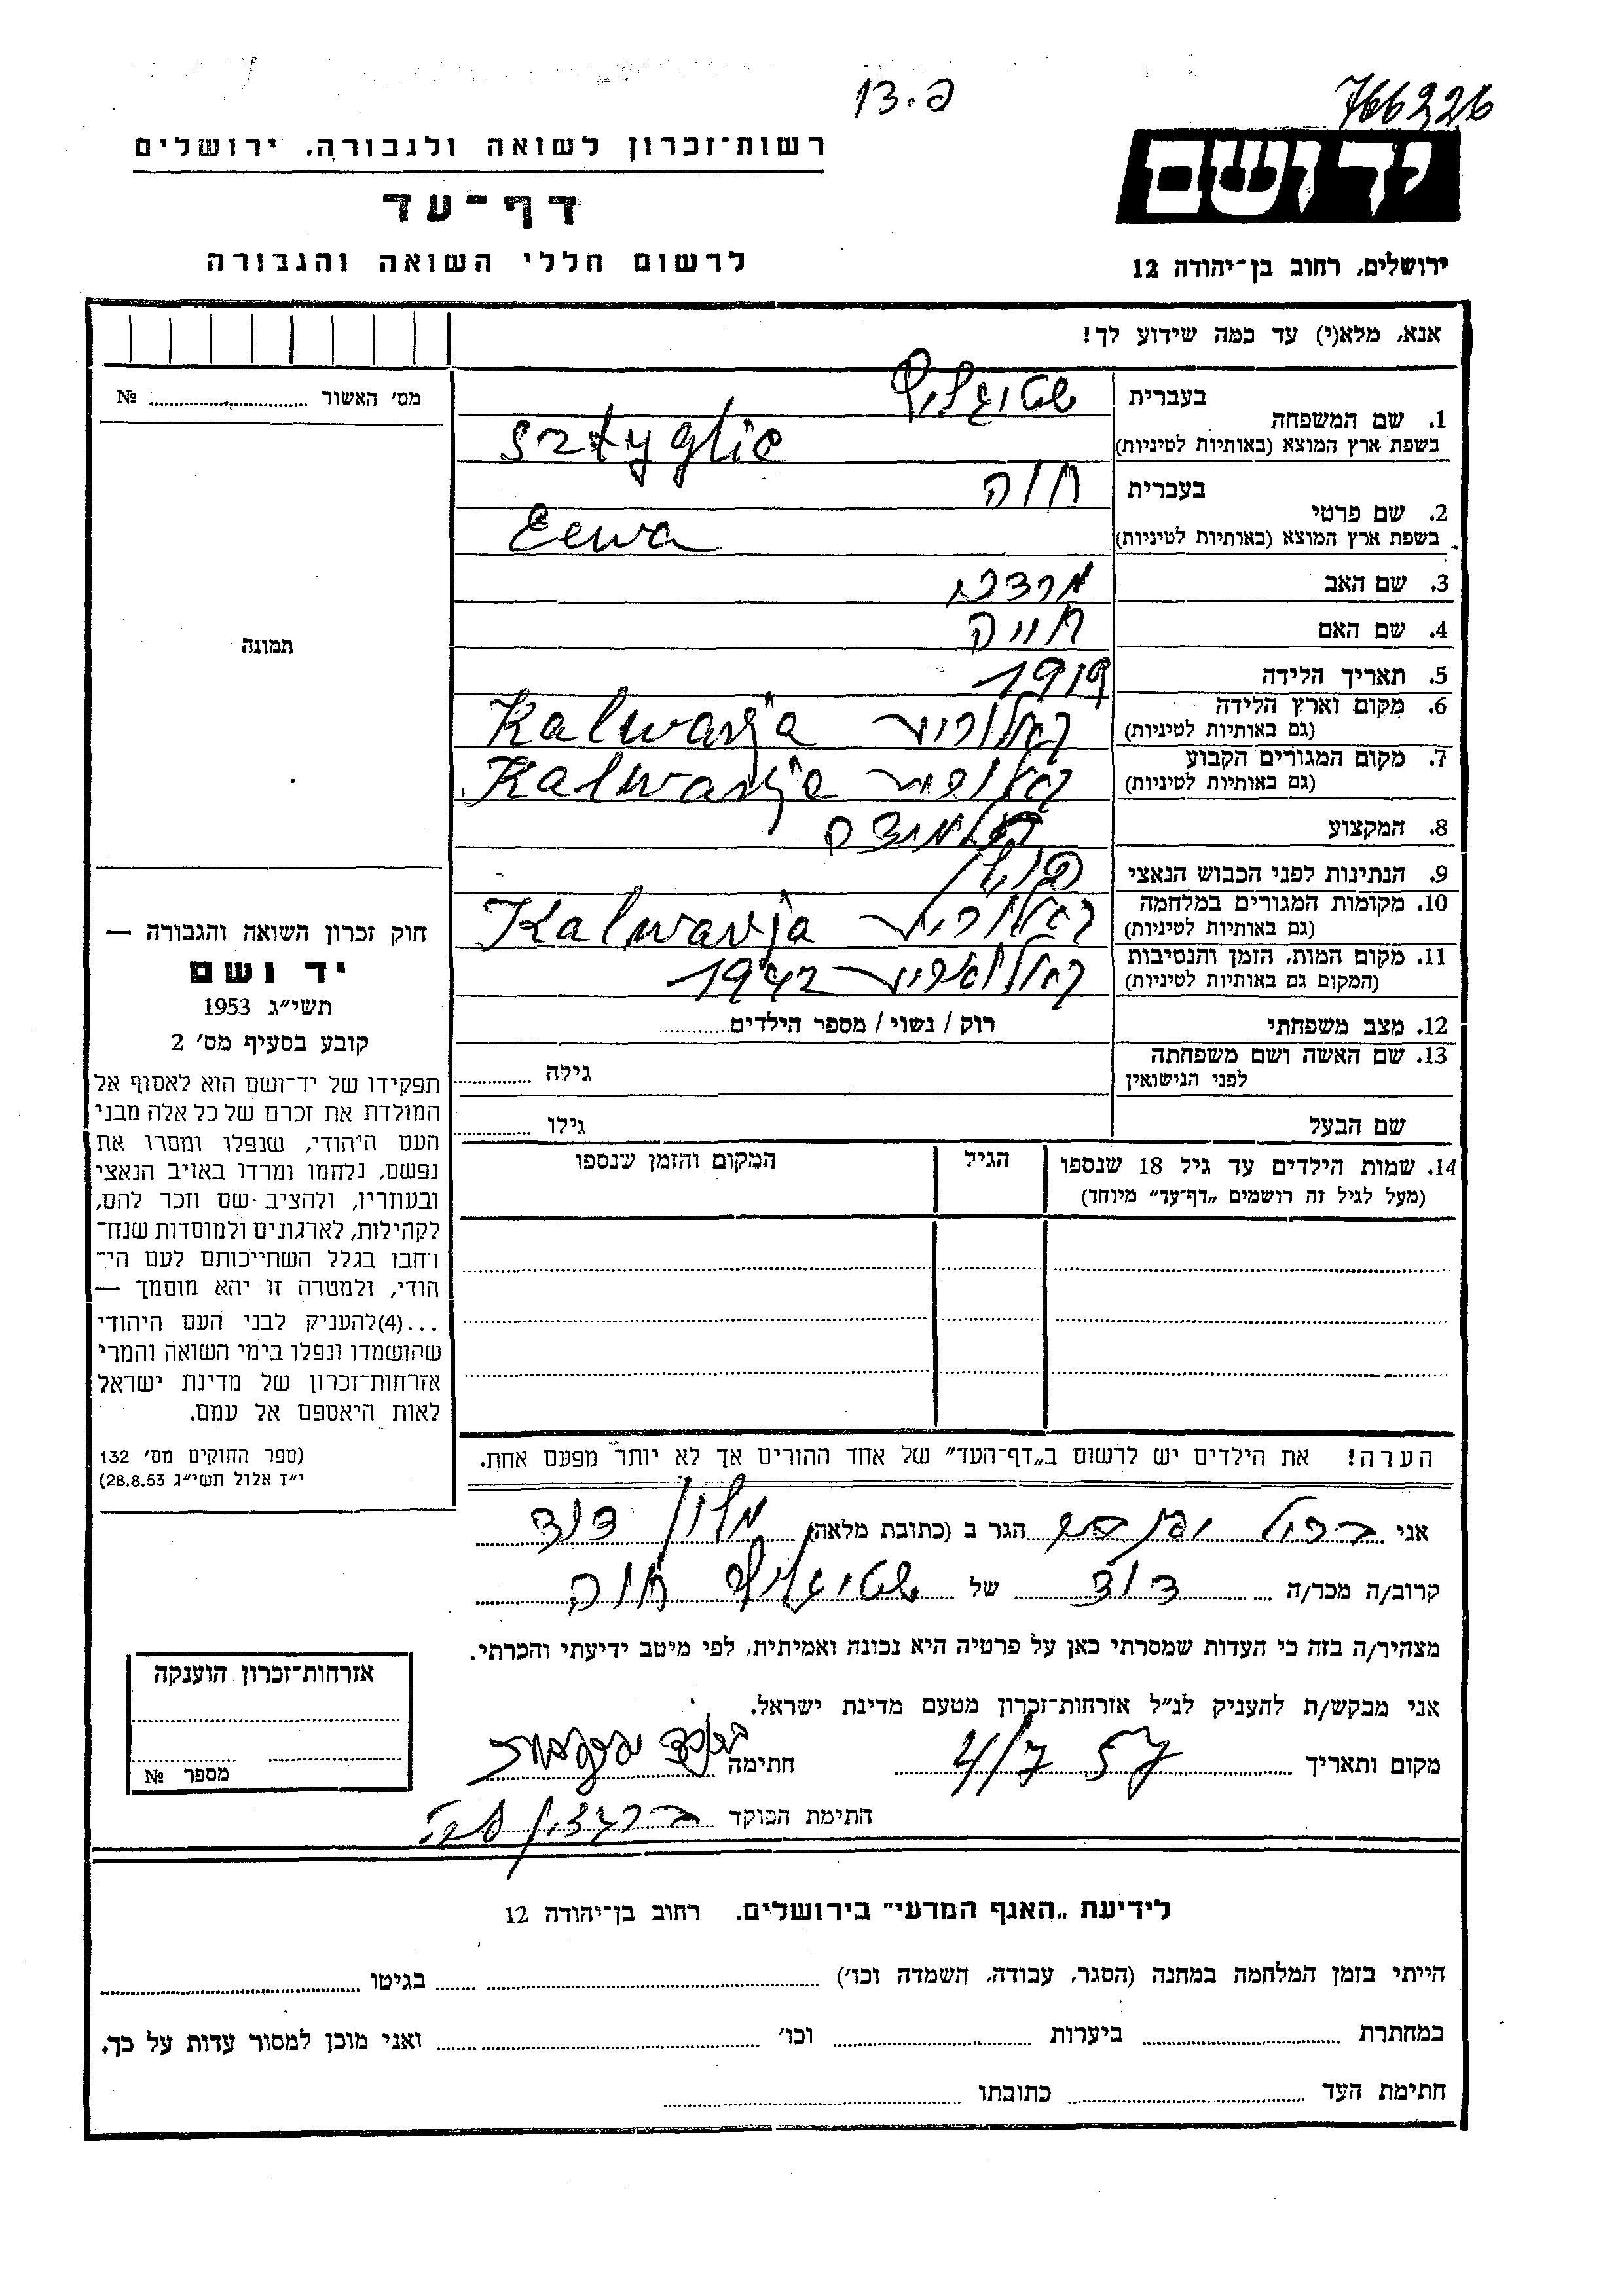 13.פ
766326
ידושם
רשות־זכרון לשואה ולגבורה, ירושלים
דף־עד
לרשום חללי השואה והגבורה
ירושלים, רחוב בן־יהודה 12
אנא, מלא(י) עד כמה שידוע לך!
מס׳ האשור № 
1. שם המשפחה בעברית שטיגליץ
בשפת ארץ המוצא (באותיות לטיניות) Sztyglic
2. שם פרטי בעברית חוה
בשפת ארץ המוצא (באותיות לטיניות) Eewa
3. שם האב מרדכי
4. שם האם חייה
5. תאריך הלידה 1919
6. מקום וארץ הלידה Kalwarja
(גם באותיות לטיניות)
7. מקום המגורים הקבוע Kalwarja
(גם באותיות לטיניות)
8. המקצוע
9. הנתינות לפני הכבוש הנאצי פולין
10. מקומות המגורים במלחמה Kalwarja
(גם באותיות לטיניות)
11. מקום המות, הזמן והנסיבות 1942
(המקום גם באותיות לטיניות)
12. מצב משפחתי רוק / נשוי / מספר הילדים
13. שם האשה ושם משפחתה
לפני הנישואין גילה
שם הבעל גילו
14. שמות הילדים עד גיל 18 שנספו הגיל המקום והזמן שנספו
(מעל לגיל זה רושמים „דף־עד״ מיוחד)
תמונה
חוק זכרון השואה והגבורה —
יד ושם
תשי״ג 1953
קובע בסעיף מס׳ 2
תפקידו של יד־ושם הוא לאסוף אל
המולדת את זכרם של כל אלה מבני
העם היהודי, שנפלו ומסרו את
נפשם, נלחמו ומרדו באויב הנאצי
ובעוזריו, ולהציב שם וזכר להם,
לקהילות, לארגונים ולמוסדות שנח־
רחבו בגלל השתייכותם לעם הי־
הודי, ולמטרה זו יהא מוסמך —
...(4)להעניק לבני העם היהודי
שהושמדו ונפלו בימי השואה והמרי
אזרחות־זכרון של מדינת ישראל
לאות היאספם אל עמם.
(ספר החוקים מס׳ 132
י״ד אלול תשי״ג 28.8.53)
הערה! את הילדים יש לרשום ב„דף־העד״ של אחד ההורים אך לא יותר מפעם אחת.
אני הגר ב (כתובת מלאה)
קרוב/ה מכר/ה דוד של שטיגליץ חוה
מצהיר/ה בזה כי העדות שמסרתי כאן על פרטיה היא נכונה ואמיתית, לפי מיטב ידיעתי והכרתי.
אני מבקש/ת להעניק לנ״ל אזרחות־זכרון מטעם מדינת ישראל.
מקום ותאריך 4/7 57 חתימה
חתימת הפוקד
אזרחות־זכרון הוענקה
מספר №
לידיעת „האגף המדעי״ בירושלים. רחוב בן־יהודה 12
הייתי בזמן המלחמה במחנה (הסגר, עבודה, השמדה וכו׳) בגיטו
במחתרת ביערות וכו׳ ואני מוכן למסור עדות על כך.
חתימת העד כתובתו